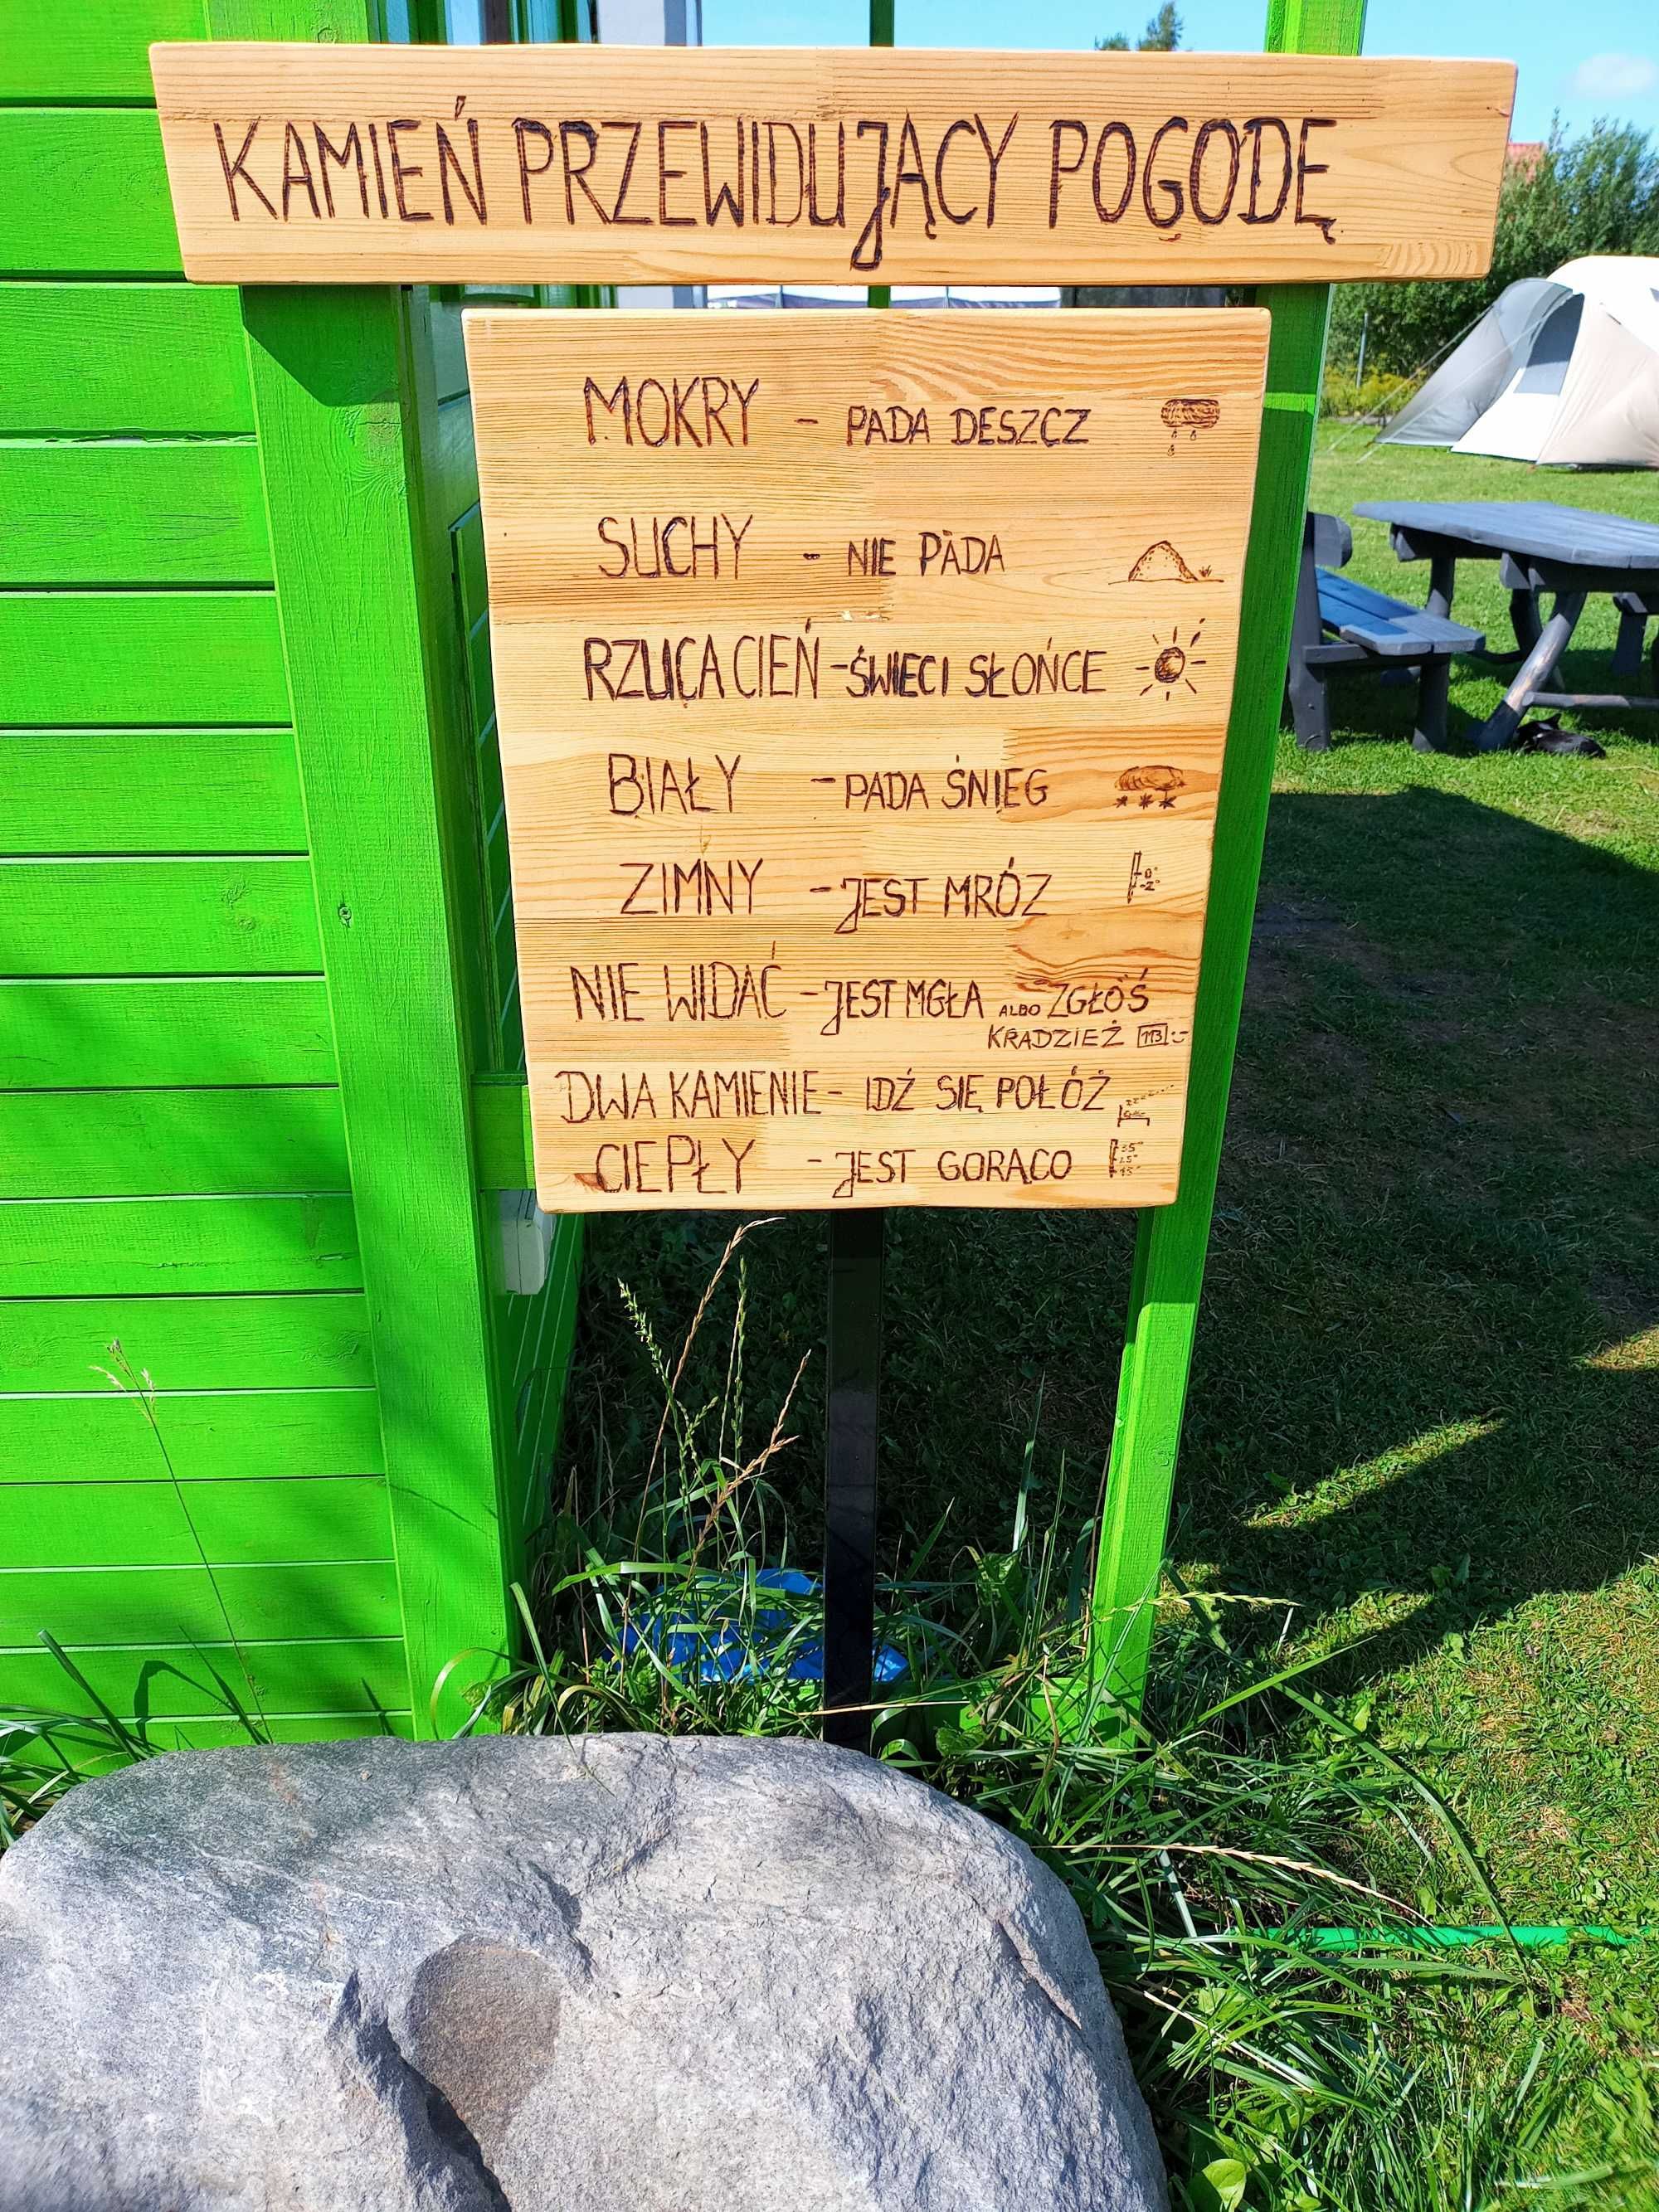 KAMIEŃ PRZEWIDUJĄCY POGODĘ
MOKRY - PADA DESZCZ
SUCHY - NIE PADA
RZUCA CIEŃ - ŚWIECI SŁOŃCE
BIAŁY - PADA ŚNIEG
ZIMNY - JEST MRÓZ 0° -2°
NIE WIDAĆ - JEST MGŁA ALBO ZGŁOŚ
KRADZIEŻ 113 :)
DWA KAMIENIE - IDŹ SIĘ POŁÓŻ
CIEPŁY - JEST GORĄCO 35° 25° 15°